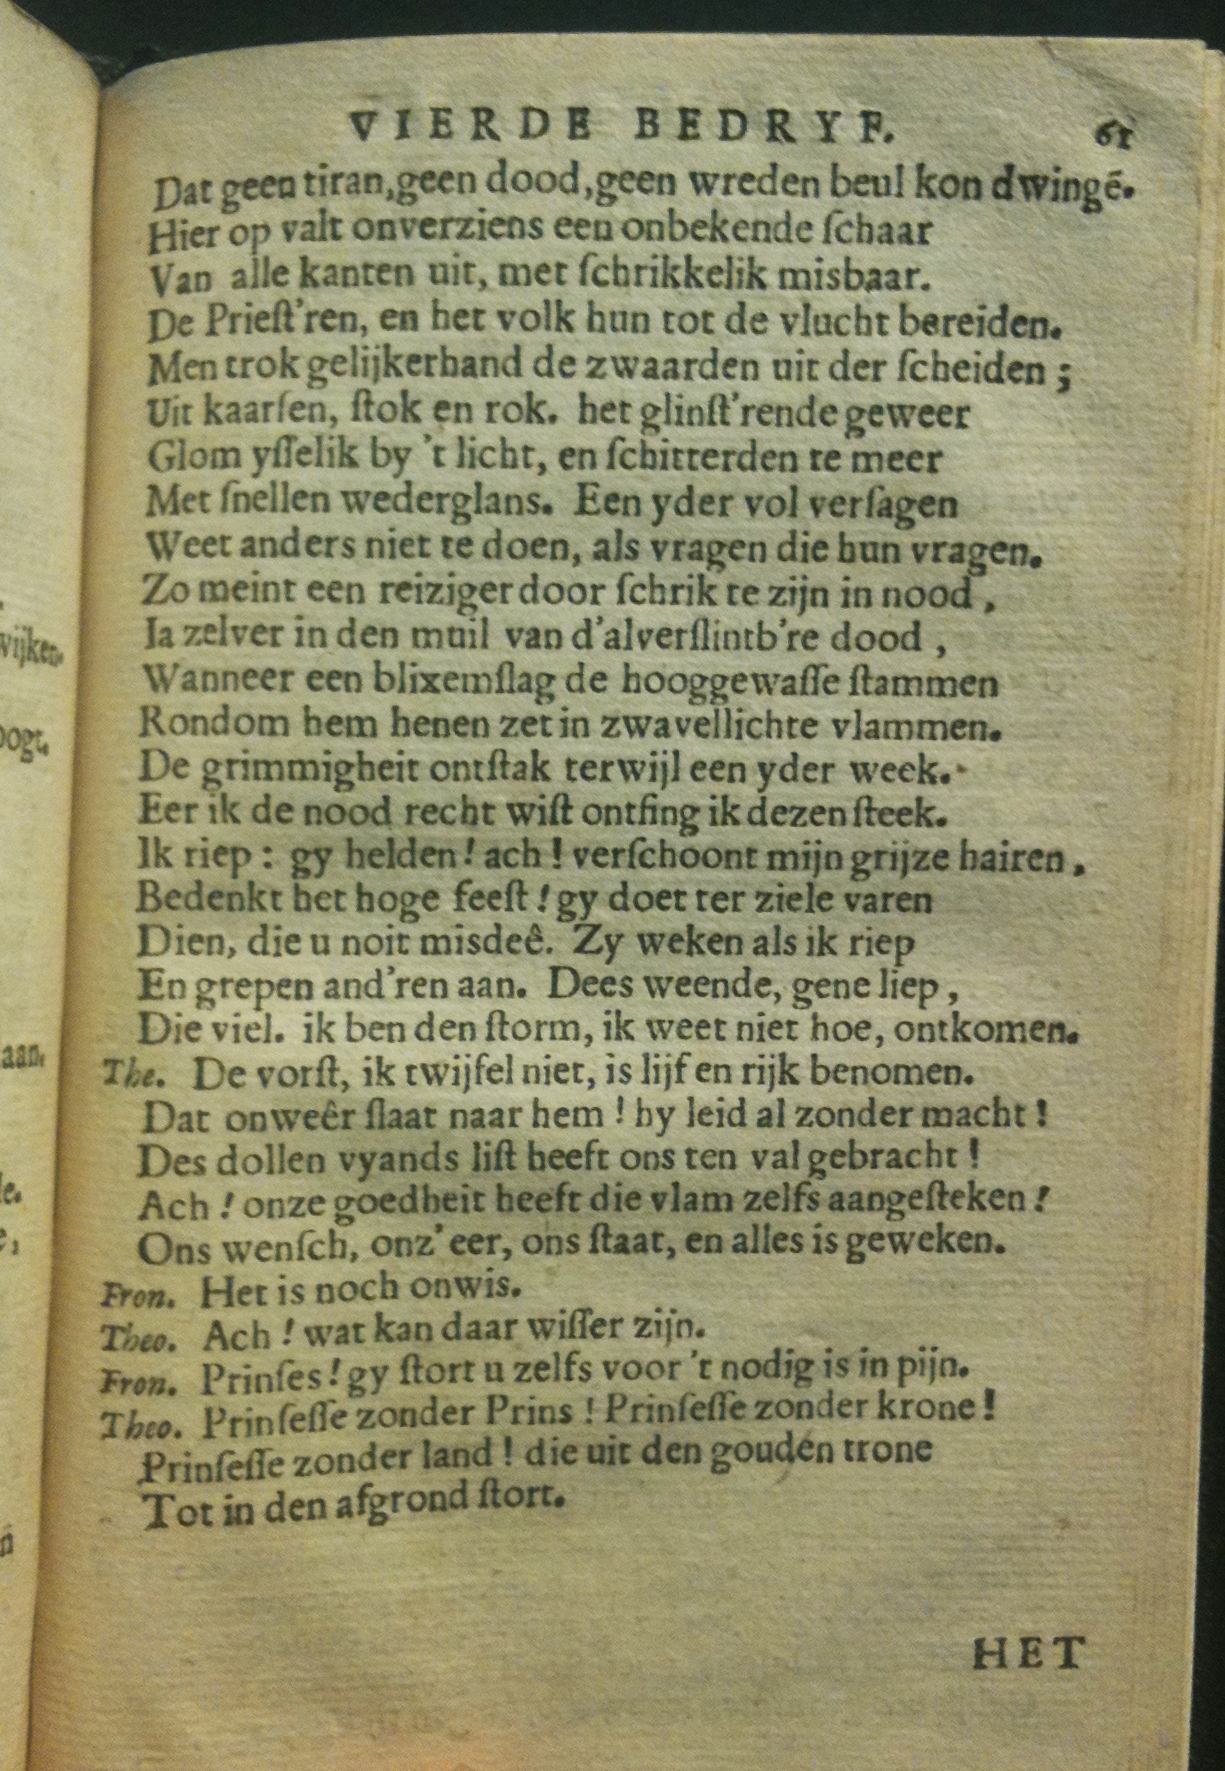 VIERDE BEDRYF. 61
Dat geen tiran, geen dood, geen wreden beul kon dwingē.
Hier op valt onverziens een onbekende ſchaar
Van alle kanten uit, met ſchrikkelik misbaar.
De Prieſt'ren, en het volk hun tot de vlucht bereiden.
Men trok gelijkerhand de zwaarden uit der ſcheiden ;
Uit kaarſen, ſtok en rok. het glinſt'rende geweer
Glom yſſelik by 't licht, en ſchitterden te meer
Met ſnellen wederglans. Een yder vol verſagen
Weet anders niet te doen, als vragen die hun vragen.
Zo meint een reiziger door ſchrik te zijn in nood,
Ja zelver in den muil van d'alverſlintb're dood,
Wanneer een blixemſlag de hooggewaſſe ſtammen
Rondom hem henen zet in zwavellichte vlammen.
De grimmigheit ontſtak terwijl een yder week.
Eer ik de nood recht wiſt ontfing ik dezen ſteek.
Ik riep : gy helden! ach! verſchoont mijn grijze hairen,
Bedenkt het hoge feeſt! gy doet ter ziele varen
Dien, die u noit misdeê. Zy weken als ik riep
En grepen and'ren aan. Dees weende, gene liep,
Die viel. ik ben den ſtorm, ik weet niet hoe, ontkomen.
The. De vorſt, ik twijfel niet, is lijf en rijk benomen.
Dat onweêr ſlaat naar hem! hy leid al zonder macht!
Des dollen vyands liſt heeft ons ten val gebracht!
Ach! onze goedheit heeft die vlam zelfs aangeſteken!
Ons wenſch, onz' eer, ons ſtaat, en alles is geweken.
Fron. Het is noch onwis.
Theo. Ach! wat kan daar wiſſer zijn.
Fron. Prinſes! gy ſtort u zelfs voor 't nodig is in pijn.
Theo. Prinſeſſe zonder Prins! Prinſeſſe zonder krone!
Prinſeſſe zonder land! die uit den gouden trone
Tot in den afgrond ſtort.
HET